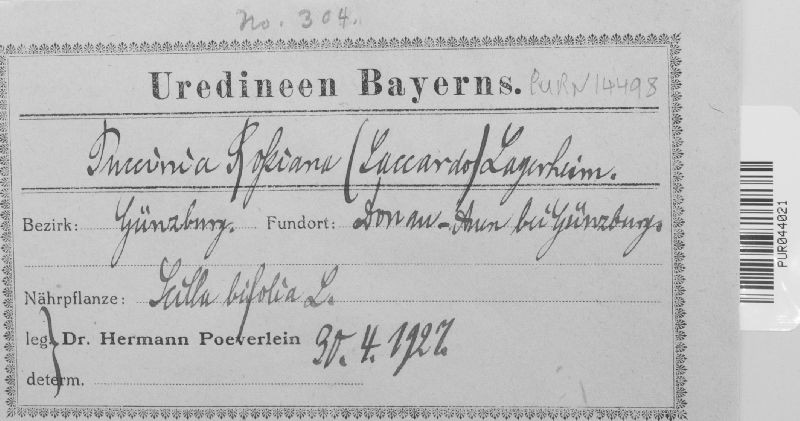 No. 304.
Uredineen Bayerns. PURN14498
Puccinia Roßiana (Saccardo) Lagerheim.
Bezirk: Günzburg. Fundort: Donau-Auen bei Günzburg.
Nährpflanze: Scilla bifolia L.
leg. } Dr. Hermann Poeverlein 30. 4. 1927.
determ.
PUR044021